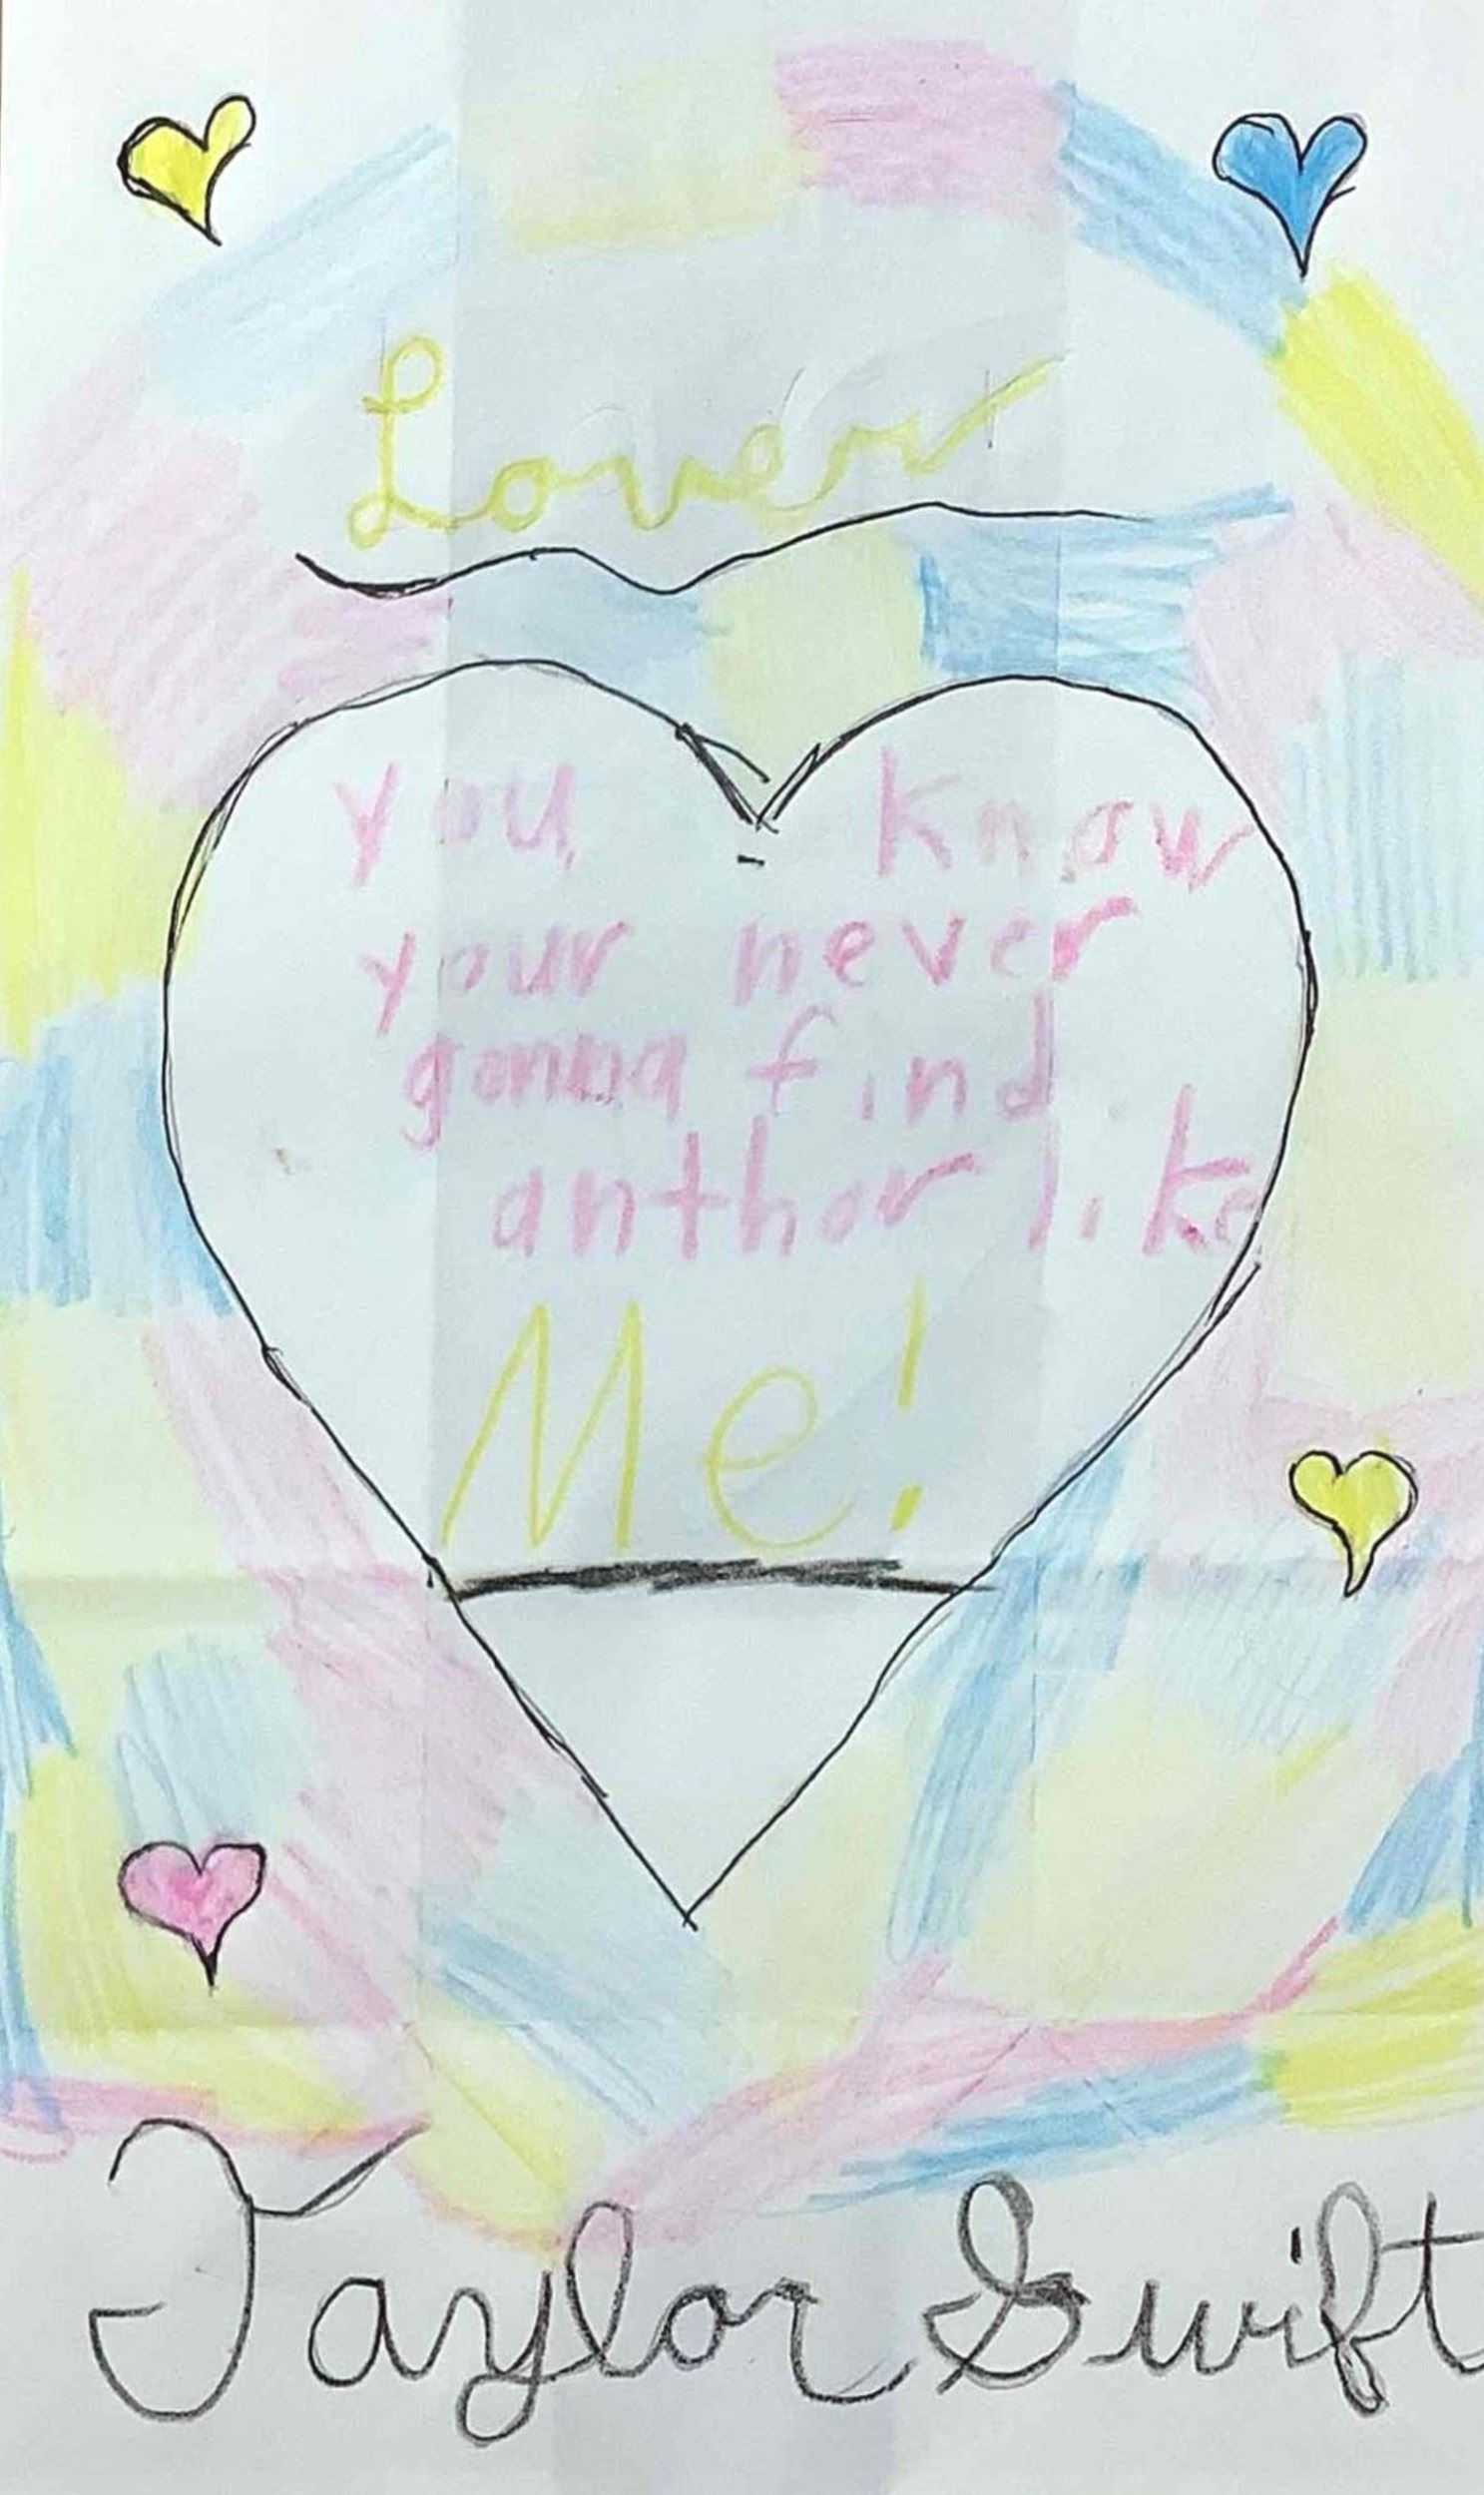 Lover
you know
your never
gonna find
anthor like
Me!
Taylor Swift